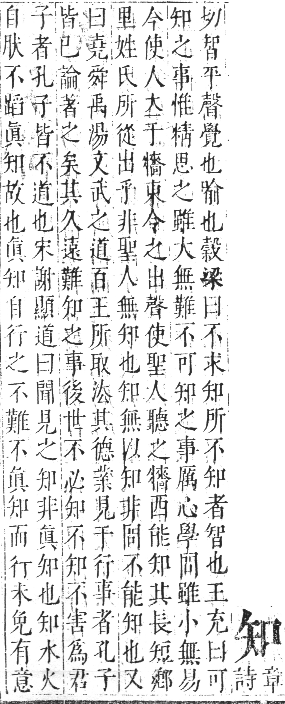 知
章
詩
切智平聲覺也喻也穀梁曰不求知所不知者智也王充曰可
知之事惟精思之雖大無難不可知之事厲心學問雖小無易
今使人立于牆東令之出聲使聖人聽之牆西能知其長短鄉
里姓氏所從出乎非聖人無知也知無以知非問不能知也又
曰堯舜禹湯文武之道百王所取法其德業見于行事者孔子
皆已論著之矣其久遠難知之事後世不必知不知不害為君
子者孔子皆不道也宋謝顯道曰聞見之知非眞知也知水火
自然不蹈眞知故也眞知自行之不難不眞知而行未免有意